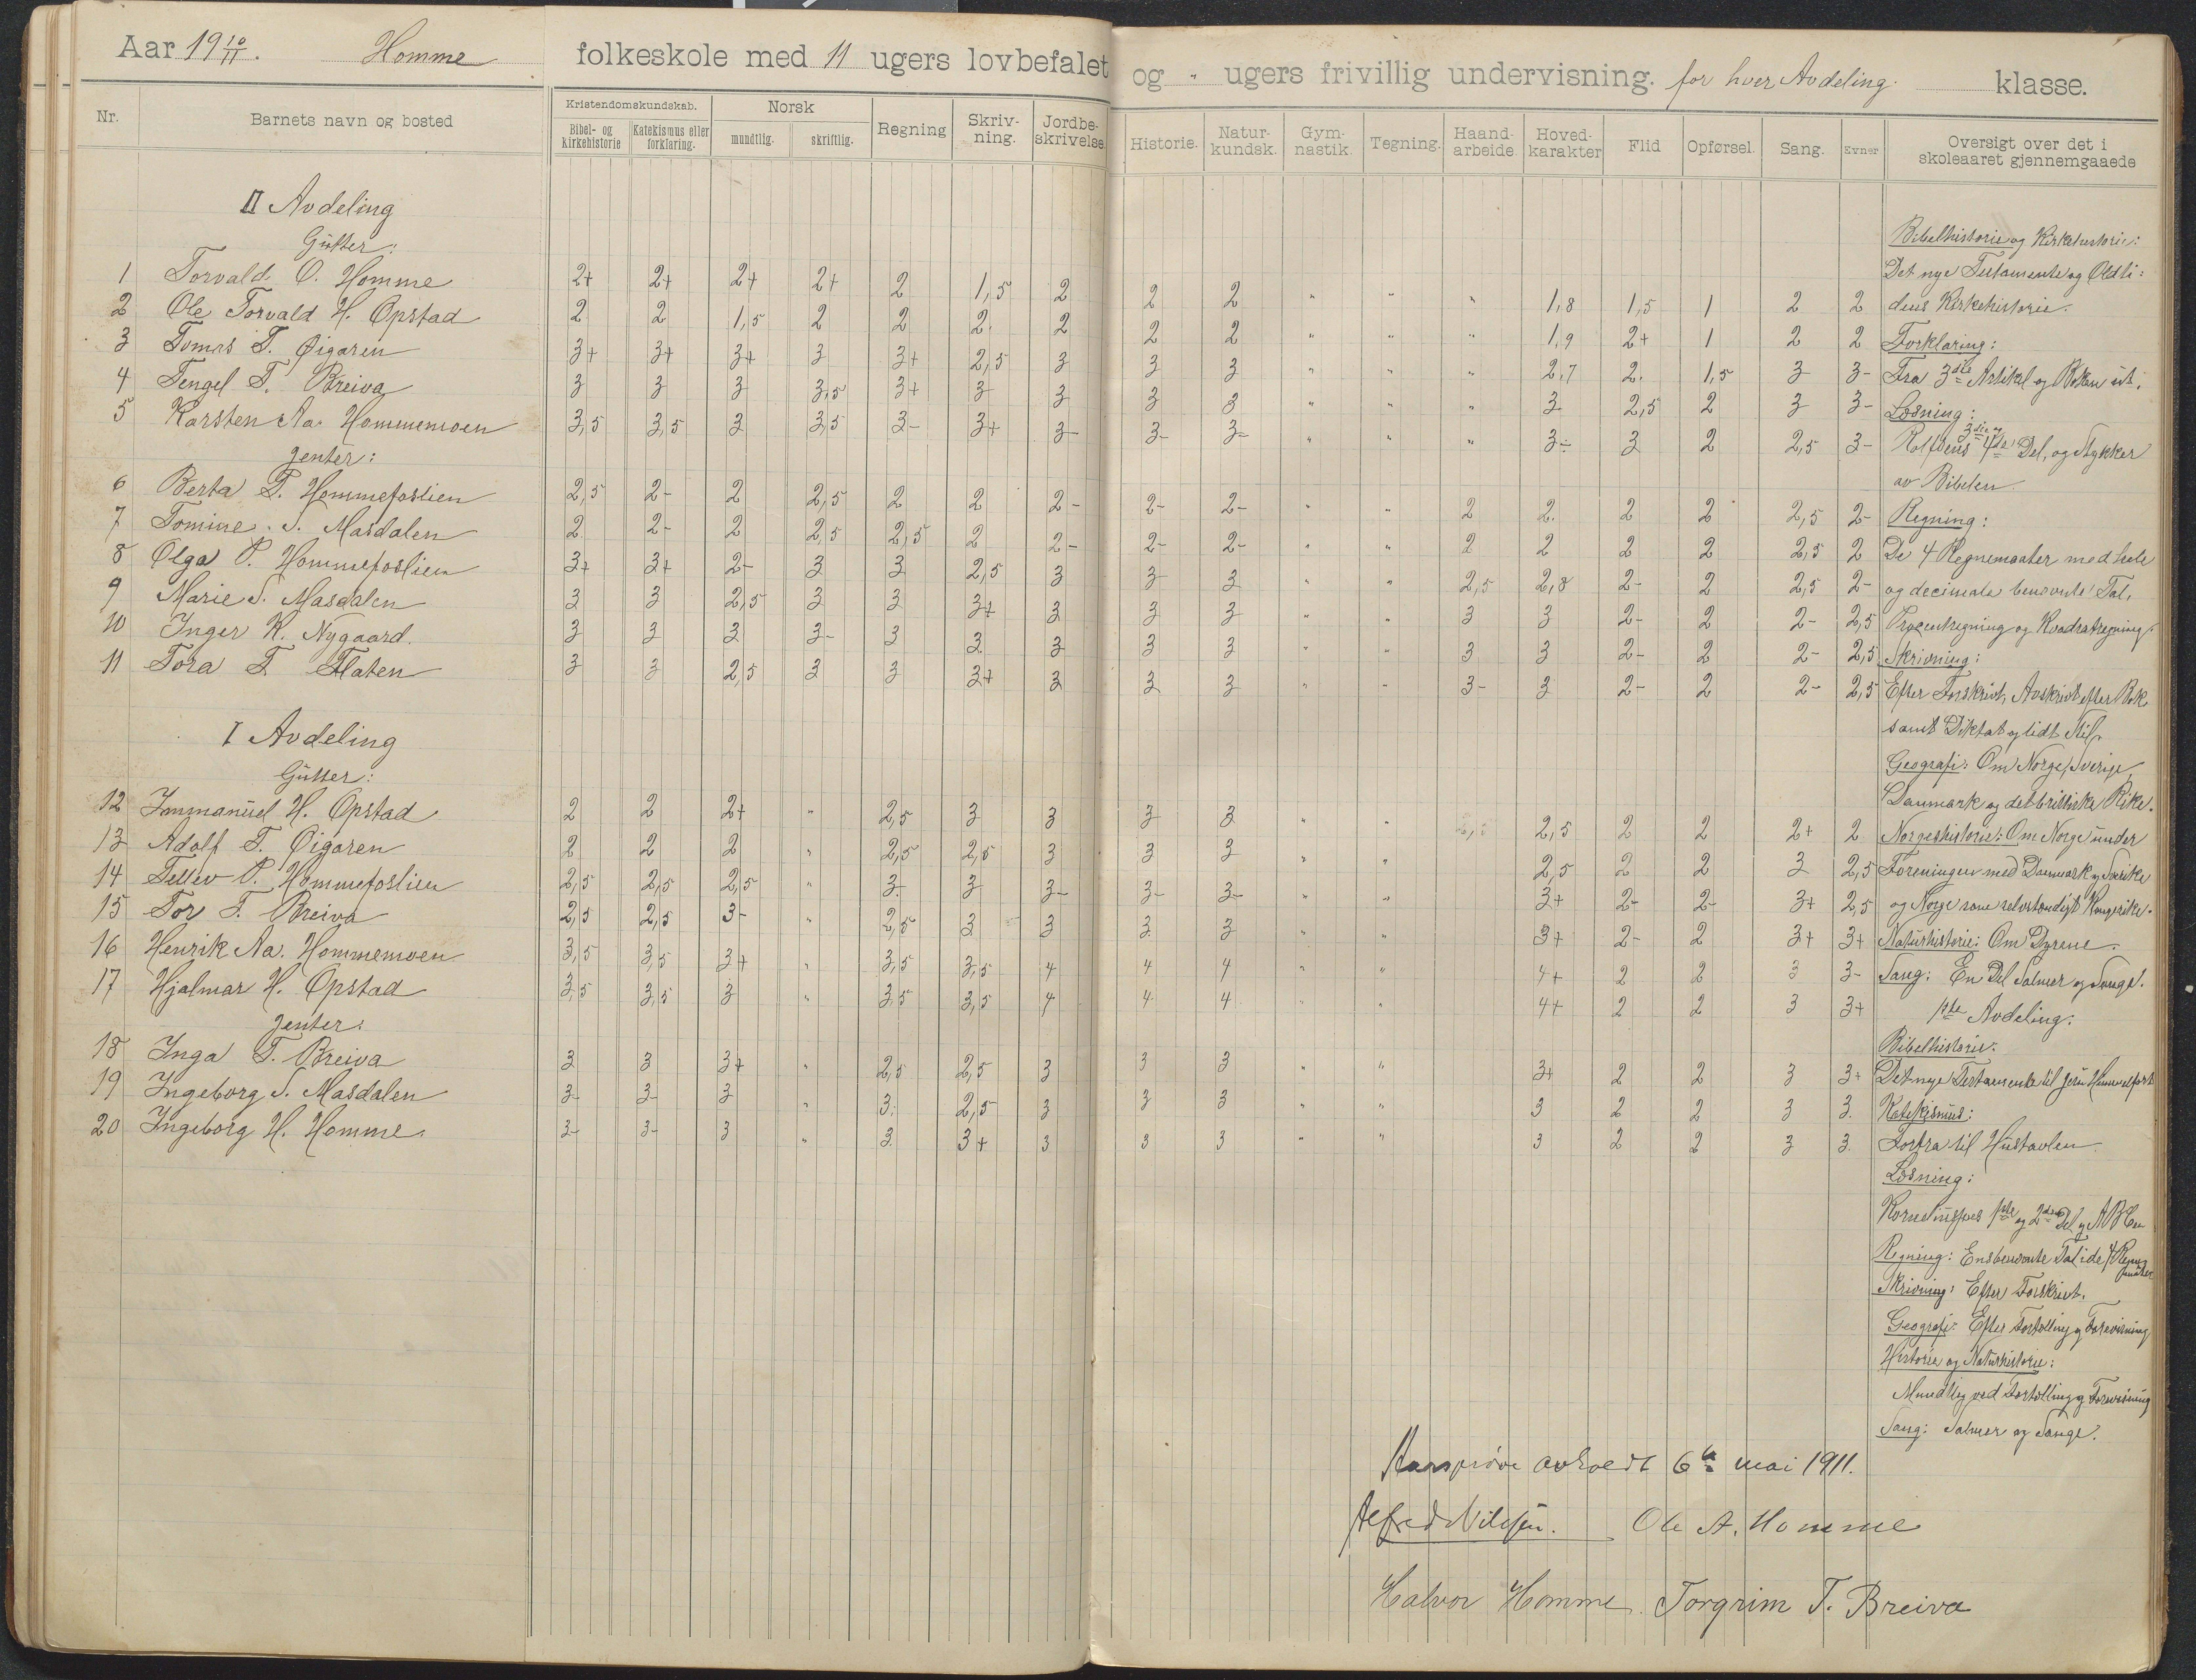 Aar 19 10/11. Homme folkeskole med 11 ugers lovbefalet og " ugers frivillig undervisning. for hver Avdeling. klasse.
Nr. Barnets navn og bosted Kristendomskundskab. Bibel- og kirkehistorie Katekismus eller forklaring. Norsk mundtlig. skriftlig. Regning Skriv-ning. Jordbe-skrivelse. Historie. Natur-kundsk. Gym-nastik. Tegning. Haand-arbeide. Hoved-karakter Flid Opførsel. Sang. Evner Oversigt over det i skoleaaret gjennemgaaede
II Avdeling
Gutter:
1 Torvald O. Homme 2+ 2+ 2+ 2+ 2 1,5 2 2 2 " " " 1,8 1,5 1 2 2
2 Ole Torvald H. Opstad 2 2 1,5 2 2 2. 2 2 2 " " " 1,9 2+ 1 2 2
3 Tomas T. Øigaren 3+ 3+ 3+ 3 3+ 2,5 3 3 3 " " " 2,7 2. 1,5 3 3-
4 Tengel T. Breiva 3 3 3 3,5 3+ 3 3 3 3 " " " 3 2,5 2 3 3-
5 Karsten Aa. Hommemoen 3,5 3,5 3 3,5 3- 3+ 3- 3- 3- " " " 3- 3 2 2,5 3-
Jenter:
6 Berta T. Hommefoslien 2,5 2- 2 2,5 2 2 2- 2- 2- " " 2 2. 2 2 2,5 2-
7 Tomine S. Masdalen 2 2- 2 2,5 2,5 2 2- 2- 2- " " 2 2 2 2 2,5 2
8 Olga P. Hommefoslien 3+ 3+ 2- 3 3 2,5 3 3 3 " " 2,5 2,8 2- 2 2,5 2-
9 Marie S. Masdalen 3 3 2,5 3 3 3+ 3 3 3 " " 3 3 2- 2 2- 2,5
10 Inger K. Nygaard. 3 3 3 3- 3 3 3 3 3 " " 3 3 2- 2 2- 2,5
11 Tora T. Flaten 3 3 2,5 3 3 3+ 3 3 3 " " 3- 3 2- 2 2- 2,5
I Avdeling
Gutter:
12 Immanuel H. Opstad 2 2 2+ " 2,5 3 3 3 3 " " 2,5 2 2 2+ 2
13 Adolf T. Øigaren 2 2 2 " 2,5 2,5 3 3 3 " " 2,5 2 2 3 2,5
14 Tellev P. Hommefoslien 2,5 2,5 2,5 " 3. 3 3- 3- 3- " " 3+ 2- 2- 3+ 2,5
15 Tor T. Breiva 2,5 2,5 3- " 2,5 3 3 3 3 " " 3+ 2- 2 3+ 3+
16 Henrik Aa. Hommemoen 3,5 3,5 3+ " 3,5 3,5 4 4 4 " " 4+ 2 2 3 3-
17 Hjalmar H. Opstad 3,5 3,5 3 " 3,5 3,5 4 4 4 " " 4+ 2 2 3 3+
Jenter:
18 Inga T. Breiva 3 3 3+ " 2,5 2,5 3 3 3 " " 3+ 2 2 3 3+
19 Ingeborg S. Masdalen 3- 3- 3 " 3. 2,5 3 3 3 " " 3 2 2 3 3.
20 Ingeborg H. Homme. 3- 3- 3 " 3 3+ 3 3 3 " " 3 2 2 3 3.
Bibelhistorie og Kirkehistorie:
Det nye Testamente og Oldti:
dens Kirkehistorie.
Forklaring:
Fra 3die Artikel og Boken ut.
Læsning:
Rolfsens 3die og 4de Del, og Stykker
av Bibelen.
Regning:
De 4 Regnemaater med hele
og decimale benevnte Tal.
Procentregning og Kvadratregning.
Skrivning:
Efter Forskrivt, Avskrivt efter Bok
samt Diktat og lidt Stil.
Geografi: Om Norge, Sverige,
Danmark og det britiske Rike.
Norgeshistorie: Om Norge under
Foreningen med Danmark og Sverike
og Norge som selvstændigt Kongerike.
Naturhistorie: Om Dyrene.
Sang: En Del Salmer og Sange.
1ste Avdeling:
Bibelhistorie:
Det nye Testamente til Jesu Himmelfart
Katekismus:
Forfra til Hustavlen.
Læsning:
1ste og 2den Del og ABCen
Regning: Ensbenevnte Tal i de 4 Regne
maater
Skrivning: Efter Forskrivt.
Geografi: Efter Fortelling og Forevisning
Historie og Naturhistorie:
Mundtlig ved Fortelling og Forevisning
Sang: Salmer og Sange.
Aarsprøve avholdt 6te mai 1911.
Alfred Nilsen. Ole A. Homme
Halvor Homme. Torgrim T. Breiva